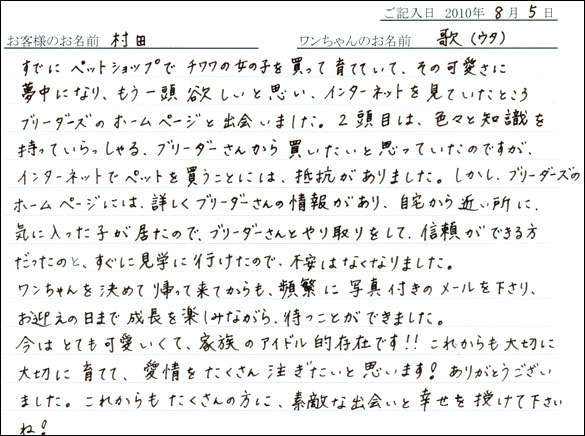 ご記入日 2010年 8月 5日
お客様のお名前 村田 ワンちゃんのお名前 歌(ウタ)
すでに ペットショップで チワワの女の子を買って育てていて、その可愛さに
夢中になり、もう一頭 欲しいと思い、インターネットを見ていたところ
ブリーダーズのホームページと出会いました。2頭目は、色々と知識を
持っていらっしゃる、ブリーダーさんから買いたいと思っていたのですが、
インターネットでペットを買うことには、抵抗がありました。しかし、ブリーダーズの
ホームページには、詳しくブリーダーさんの情報があり、自宅から近い所に、
気に入った子が居たので、ブリーダーさんとやり取りをして、信頼ができる方
だったのと、すぐに見学に行けたので、不安はなくなりました。
ワンちゃんを決めて帰って来てからも、頻繁に写真付きのメールを下さり、
お迎えの日まで成長を楽しみながら、待つことができました。
今はとても可愛いくて、家族のアイドル的存在です!! これからも大切に
大切に育てて、愛情をたくさん注ぎたいと思います! ありがとうござい
ました。これからもたくさんの方に、素敵な出会いと幸せを授けて下さい
ね!